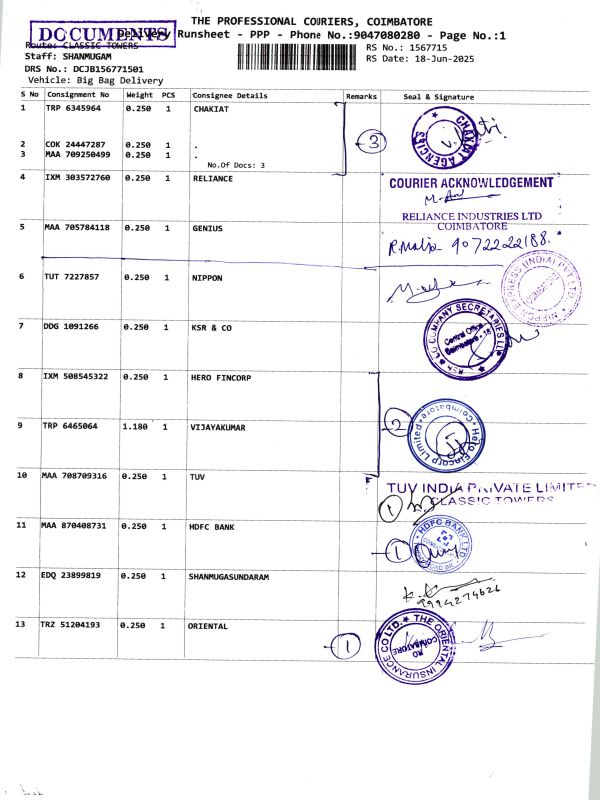 THE PROFESSIONAL COURIERS, COIMBATORE
DOCUMENTS
Delivery Runsheet - PPP - Phone No.:9047080280 - Page No.:1
Route: CLASSIC TOWERS
RS No.: 1567715
Staff: SHANMUGAM
RS Date: 18-Jun-2025
DRS No.: DCJB156771501
Vehicle: Big Bag Delivery
S No Consignment No Weight PCS Consignee Details Remarks Seal & Signature
1 TRP 6345964 0.250 1 CHAKIAT
CHAKIAT AGENCIES
2 COK 24447287 0.250 1 .
3
3 MAA 709250499 0.250 1 .
No.Of Docs: 3
4 IXM 303572760 0.250 1 RELIANCE
COURIER ACKNOWLEDGEMENT
RELIANCE INDUSTRIES LTD
COIMBATORE
5 MAA 705784118 0.250 1 GENIUS
9072222188.
6 TUT 7227857 0.250 1 NIPPON
NIPPON EXPRESS (INDIA) PVT LTD.
COIMBATORE
7 DDG 1091266 0.250 1 KSR & CO
KSR & CO COMPANY SECRETARIES LLP
Central Office
Coimbatore - 18
8 IXM 508545322 0.250 1 HERO FINCORP
Hero Fincorp Limited
Coimbatore
2
9 TRP 6465064 1.180 1 VIJAYAKUMAR
10 MAA 708709316 0.250 1 TUV
TUV INDIA PRIVATE LIMITE
CLASSIC TOWERS
1
11 MAA 870408731 0.250 1 HDFC BANK
HDFC BANK LTD.
1
12 EDQ 23899819 0.250 1 SHANMUGASUNDARAM
9994274626
13 TRZ 51204193 0.250 1 ORIENTAL
THE ORIENTAL INSURANCE CO LTD.
RO
COIMBATORE
1